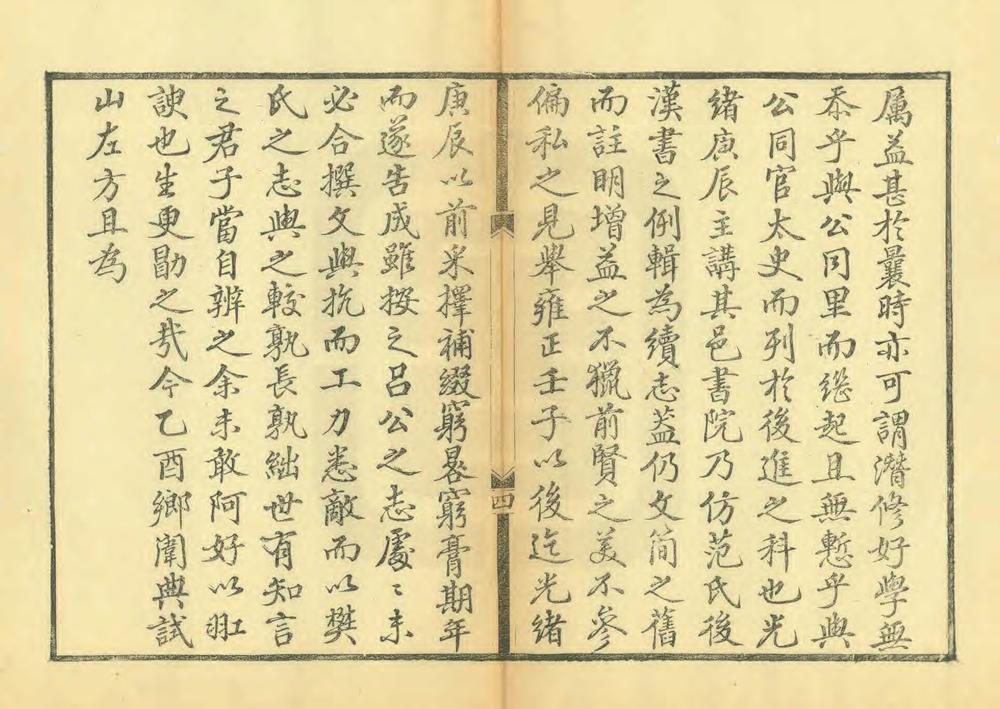 厲益甚於曩時亦可謂潛修好學無
忝乎與公同里而繼起且無慙乎與
公同官太史而列於後進之科也光
緒庚辰主講其邑書院乃仿范氏後
漢書之例輯為續志蓋仍文簡之舊
而註明增益之不獵前賢之美不參
偏私之見舉雍正壬子以後迄光緒
四
庚辰以前采擇補綴窮晷窮膏期年
而遂告成雖按之呂公之志處〻未
必合撰文與抗而工力悉敵而以樊
氏之志與之較孰長孰絀世有知言
之君子當自辨之余未敢阿好以
諛也生更勖之哉今乙酉鄉闈典試
山左方且為